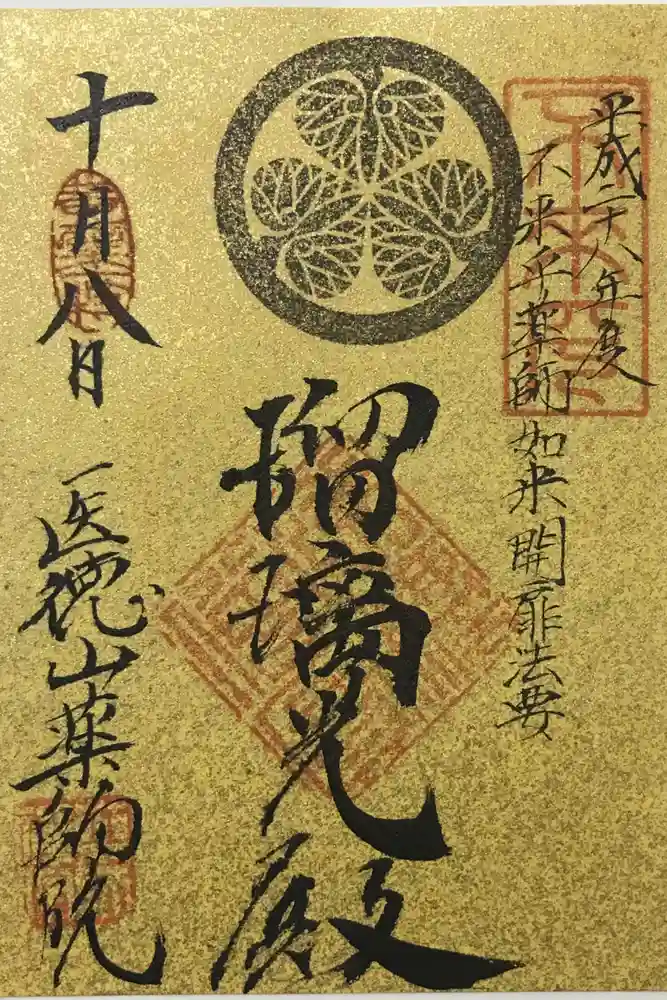 平成二十八年度
不来乎薬師如来開扉法要
瑠璃光殿
十月八日
医徳山薬師院